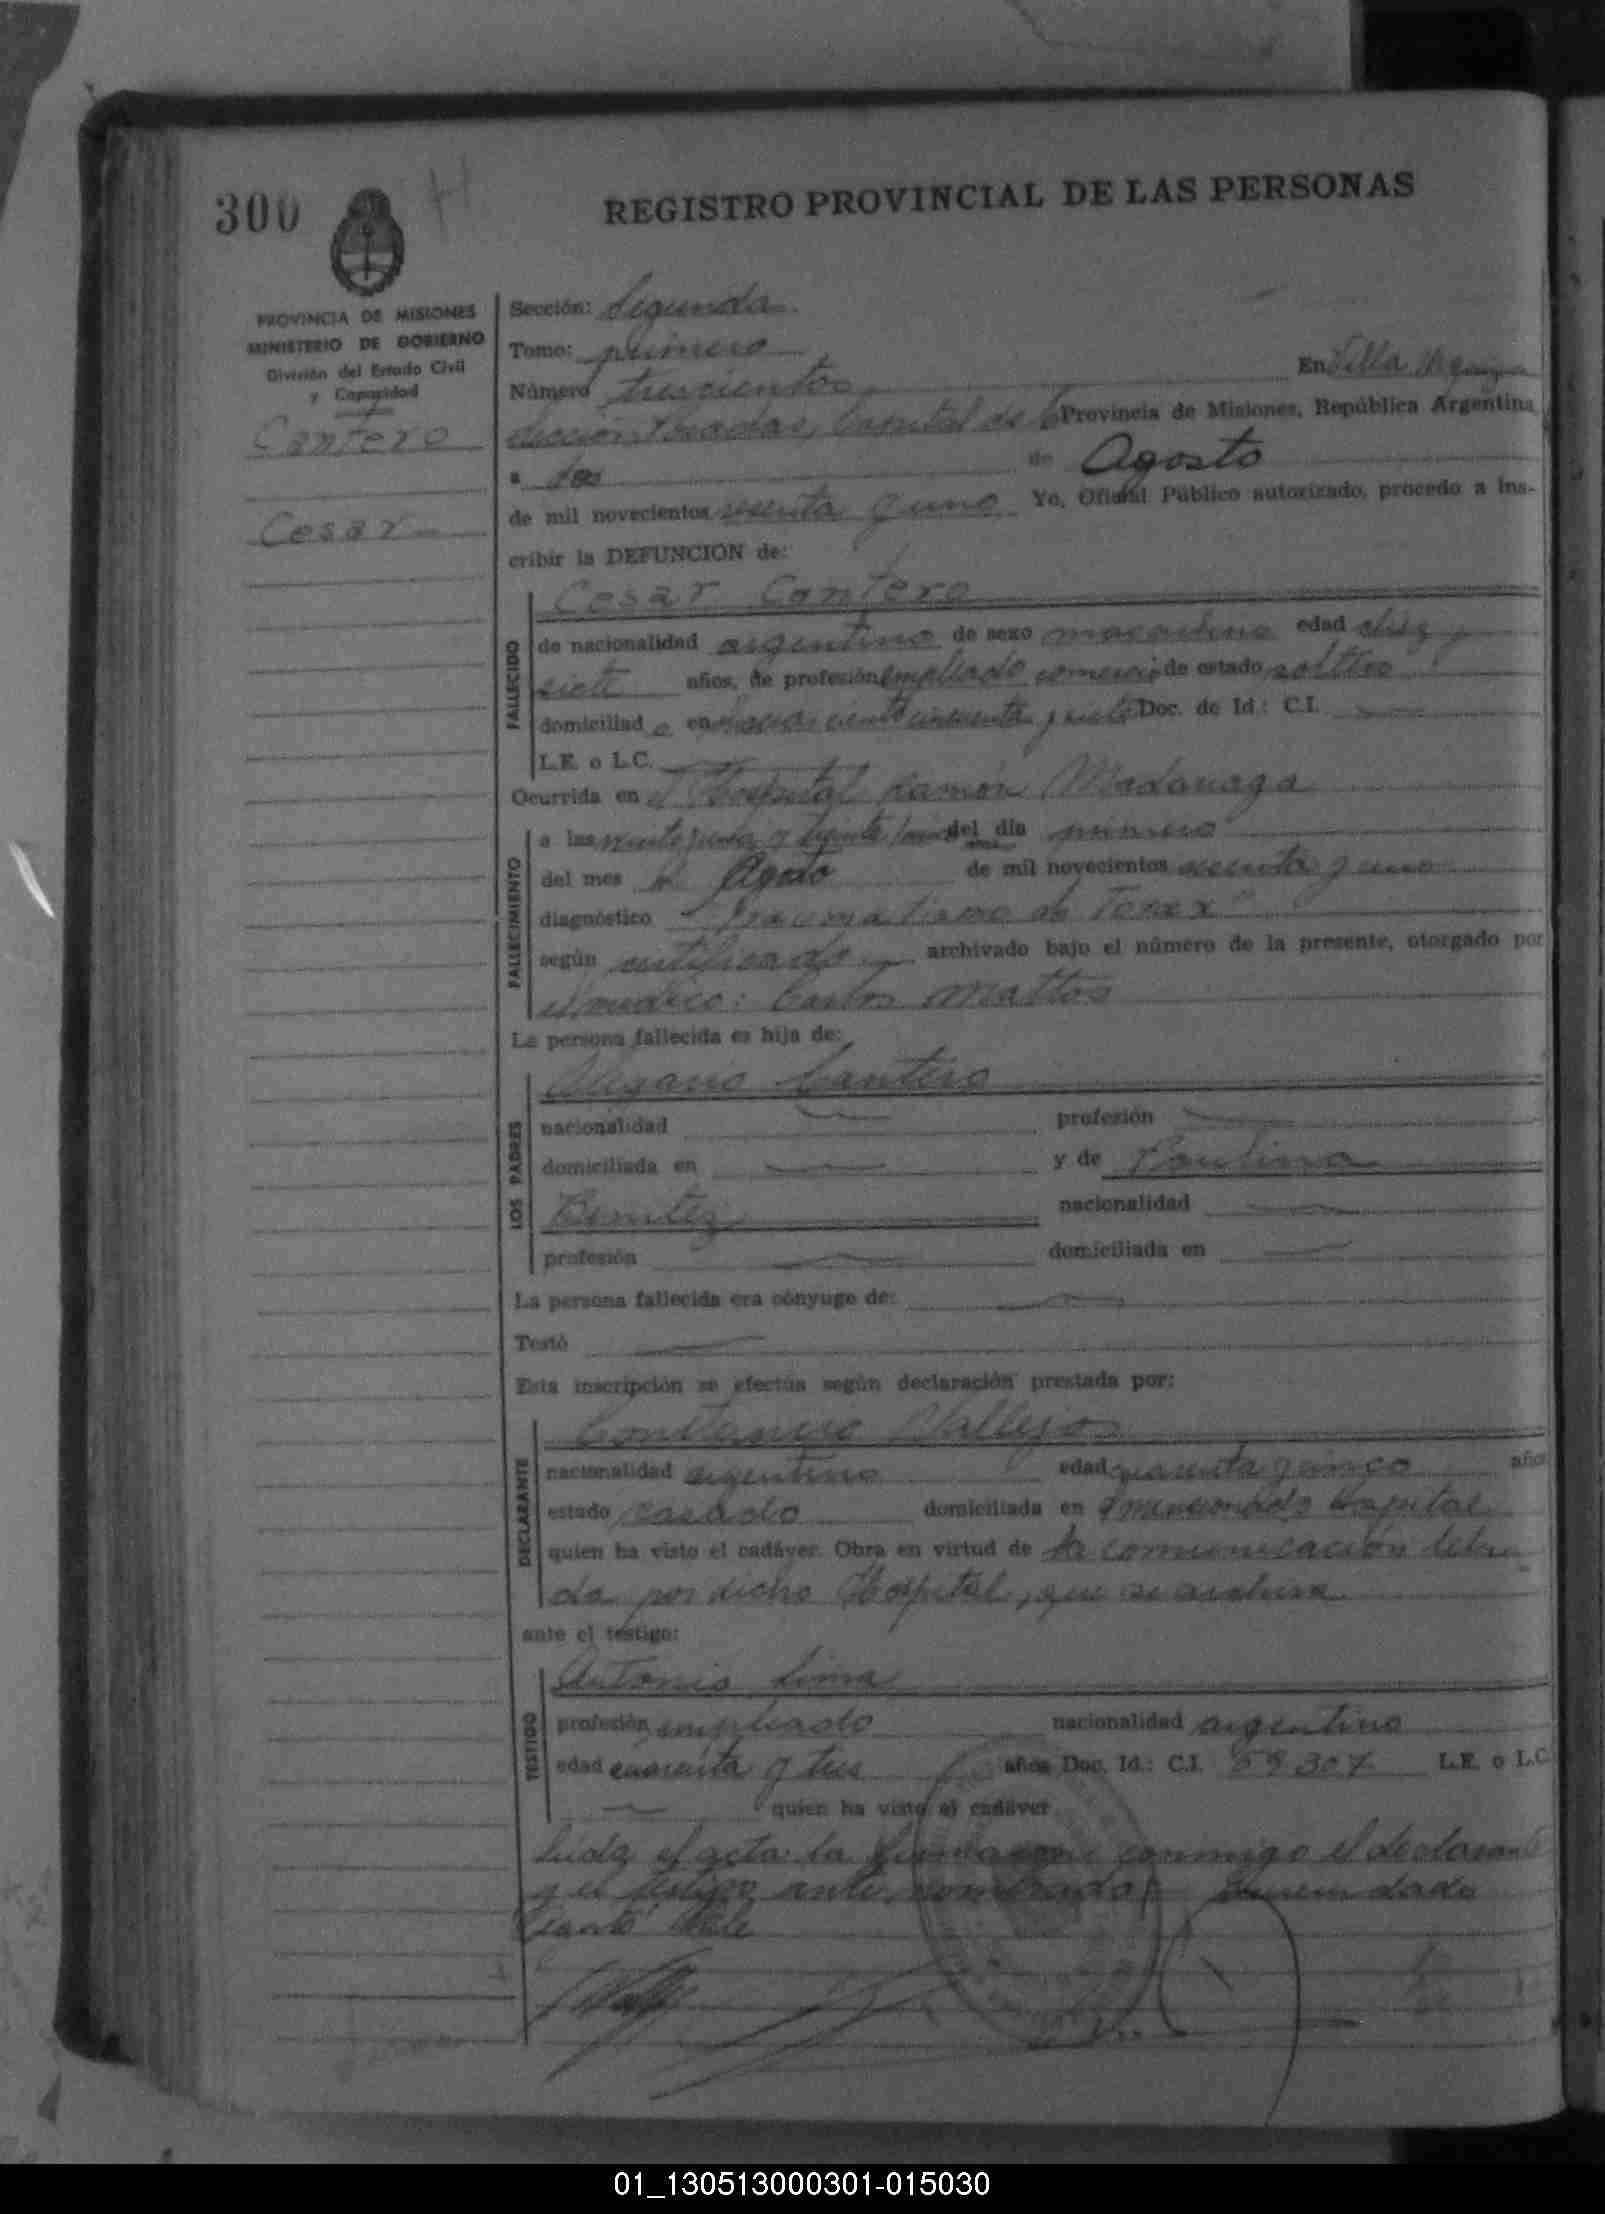 300
REGISTRO PROVINCIAL DE LAS PERSONAS
PROVINCIA DE MISIONES
MINISTERIO DE GOBIERNO
División del Estado Civil
y Capacidad
Cantero
Cesar
Sección: Segunda
Tomo: primero
Número trescientos En Villa Urquiza
Sección Posadas, Capital de la Provincia de Misiones, República Argentina
a dos de Agosto
de mil novecientos sesenta y uno Yo, Oficial Público autorizado, procedo a ins-
cribir la DEFUNCION de:
Cesar Cantero
FALLECIDO
de nacionalidad argentino de sexo masculino edad diez y
siete años, de profesión empleado comercio de estado soltero
domiciliad o en ciento cincuenta y siete Doc. de Id.: C.I.
L.E. o L.C.
Ocurrida en el Hospital Ramón Madariaga
FALLECIMIENTO
a las veinte y una y treinta horas del día primero
del mes de Agosto de mil novecientos sesenta y uno
diagnóstico "Traumatismo de Torax"
según certificado archivado bajo el número de la presente, otorgado por
el médico: Carlos Mattos
La persona fallecida es hija de:
LOS PADRES
Olegario Cantero
nacionalidad profesión
domiciliada en y de Paulina
Benitez nacionalidad
profesión domiciliada en
La persona fallecida era cónyuge de:
Testó
Esta inscripción se efectúa según declaración prestada por:
DECLARANTE
Vallejos
nacionalidad argentino edad cuarenta y cinco año
estado casado domiciliada en mencionado Hospital
quien ha visto el cadáver. Obra en virtud de la comunicación
da por dicho Hospital, que se archiva
ante el testigo:
TESTIGO
Antonio Lima
profesión empleado nacionalidad argentino
edad cuarenta y tres años Doc. Id.: C.I. 59.307 L.E. o L.C.
quien ha visto el cadáver
Leída el acta la conmigo el declarante
y el testigo ante nombrado Enmendado
Vale
01_130513000301-015030